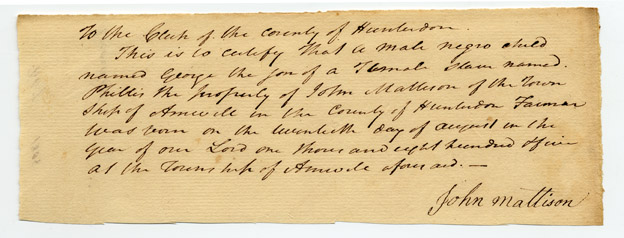 To the Clerk of the county of Hunterdon.
This is to certify that a male negro child
named George the son of a Female slave named.
Phillis the property of John Mattison of the Town
ship of Amwele in the County of Hunterdon Farmar
was born on the twentieth day of august in the
year of our Lord one thousand eight hundred &five
at the Township of Amwele aforesaid.—
John Mattison